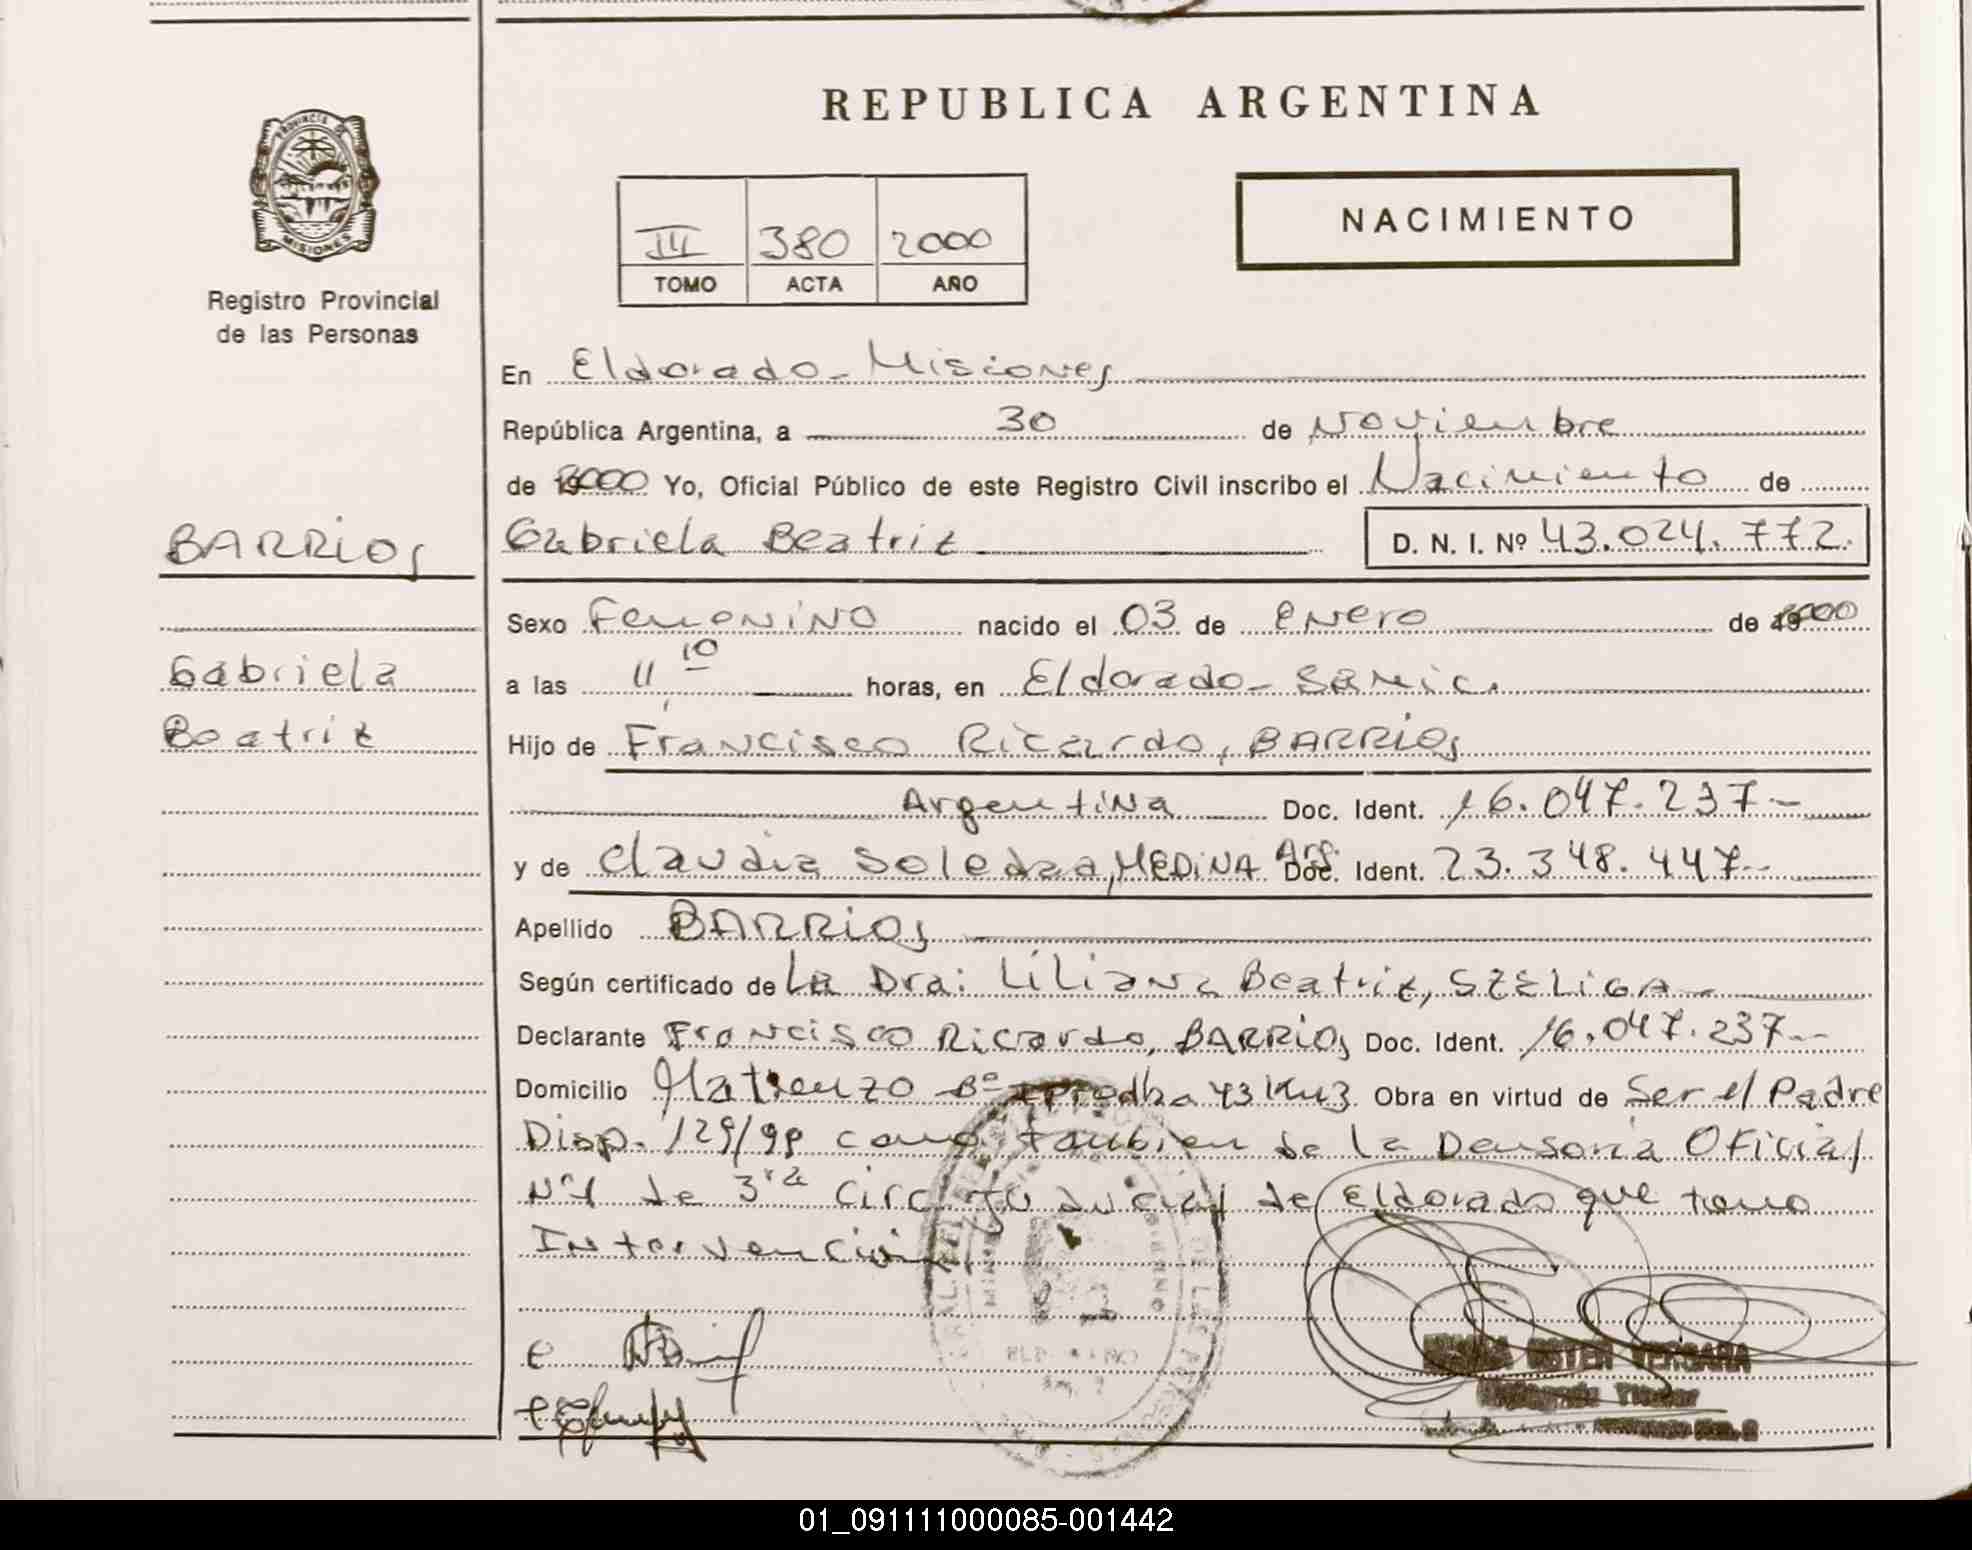 REPUBLICA ARGENTINA
PROVINCIA DE
MISIONES
Registro Provincial
de las Personas
III 380 2000
TOMO ACTA AÑO
NACIMIENTO
En Eldorado - Misiones
República Argentina, a 30 de Noviembre
de 2000 Yo, Oficial Público de este Registro Civil inscribo el Nacimiento de
BARRIOS
Gabriela Beatriz D. N. I. Nº 43.024.772.
Sexo Femenino nacido el 03 de Enero de 2000
Gabriela
a las 11,10 horas, en Eldorado - Samic.
Beatriz
Hijo de Francisco Ricardo, BARRIOS
Argentina Doc. Ident. 16.047.237-
y de Claudia Soledad, MEDINA Arg. Doc. Ident. 23.348.447-
Apellido BARRIOS
Según certificado de La Dra: Liliana Beatriz, SZELIGA -
Declarante Francisco Ricardo, BARRIOS Doc. Ident. 16.047.237--
Domicilio Matienzo Bº 43 Km3 Obra en virtud de Ser el Padre
Disp. 129/99 como tambien de la Densoria Oficial
Nº1 de 3ra Circ Judicial de Eldorado que tomo
Intervención
ESTER VERGARA
Titular
01_091111000085-001442